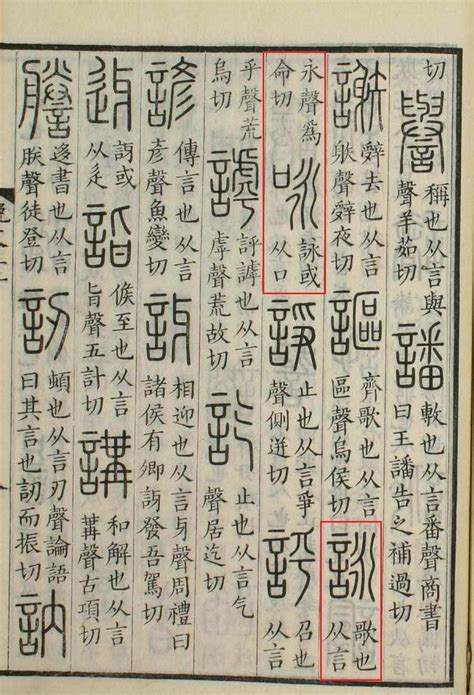 切譽稱也从言與聲羊茹切譒敷也从言番聲商書曰王譒告之補過切
謝辤去也从言䠶聲辝夜切謳齊歌也从言區聲烏侯切詠歌也从言
永聲爲命切咏詠或从口諍止也从言爭聲側迸切評召也从言
乎聲荒烏切謼評謼也从言虖聲荒故切訖止也从言气聲居迄切
諺傳言也从言彥聲魚變切訝相迎也从言牙聲周禮曰諸侯有卿訝發吾駕切
迓訝或从辵詣候至也从言旨聲五計切講和解也从言冓聲古項切
謄迻書也从言朕聲徒登切訒頓也从言刃聲論語曰其言也訒而振切訥